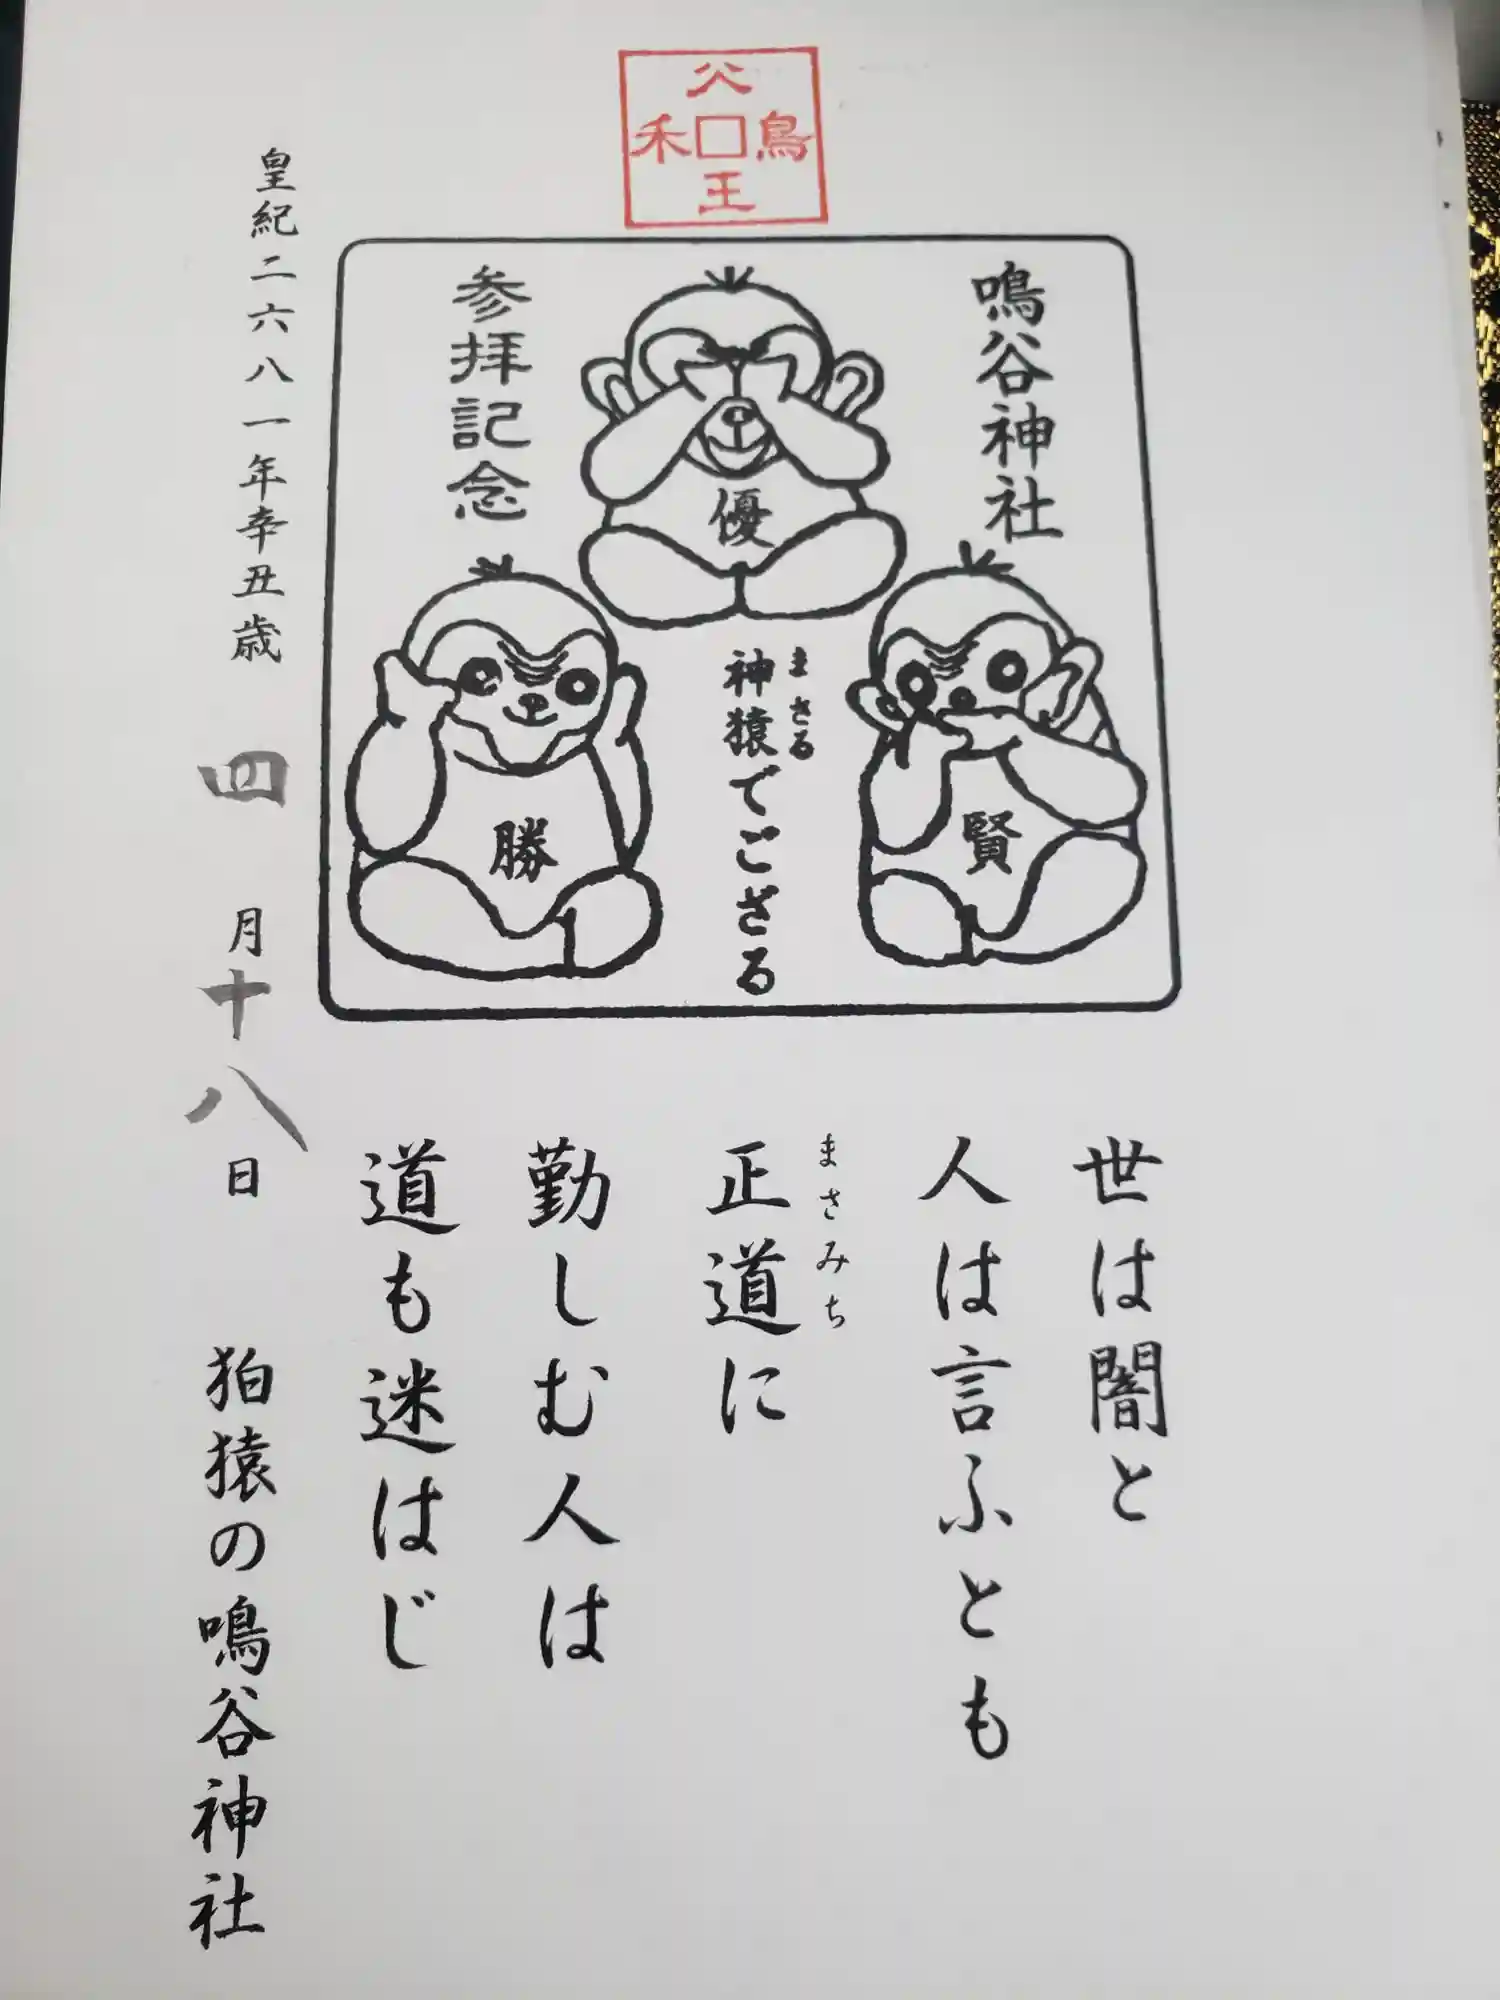 公
禾口鳥
王
鳴谷神社
優
参拝記念
賢
まさる
神猿でござる
勝
世は闇と
人は言ふとも
まさみち
正道に
勤しむ人は
道も迷はじ
皇紀二六八一年辛丑歳 四月十八日 狛猿の鳴谷神社